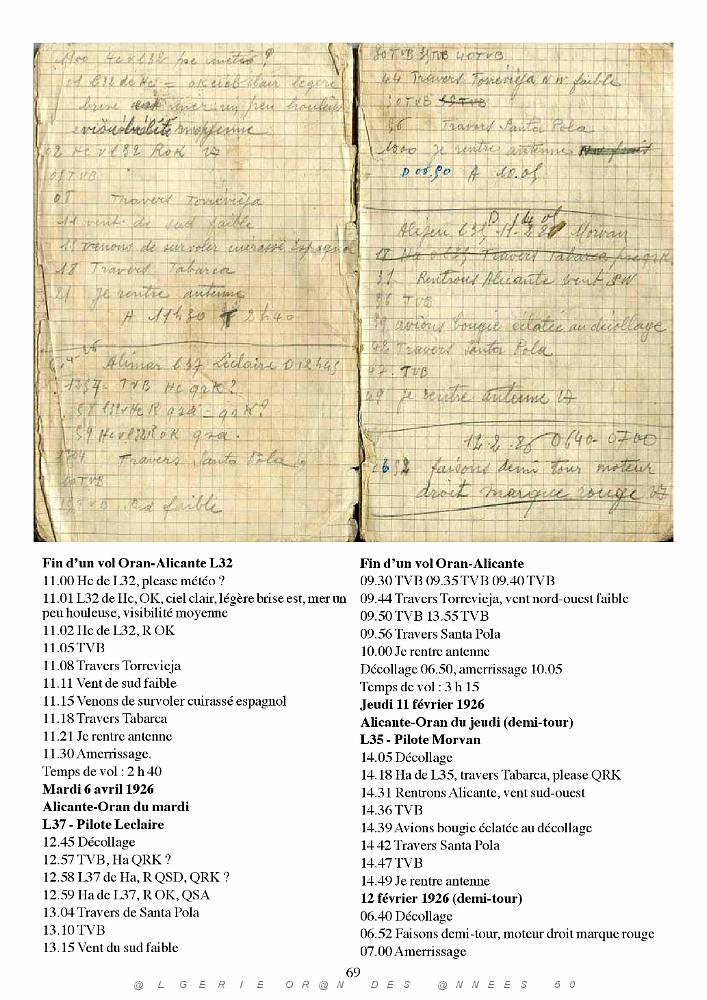 1100 Hc v L32 pse météo ?
01 L32 de Hc – OK ciel clair légère
brise est mer un peu houleuse
visibilité moyenne
02 Hc v L32 ROK
05 TVB
08 Travers Torrevieja
11 vent du sud faible
15 venons de survoler cuirassé Espagnol
18 Travers Tabarca
21 je rentre antenne
A 11h30 2h40
Leclaire D 12h45
1257 - TVB Hc qrk ?
58 L37 v Hc R qsa - qrk ?
1304 Travers Santa Pola
10 TVB
Sud faible
30 TVB 35 TVB 40 TVB
44 Travers Torrevieja N.W faible
50 TVB 55 TVB
56 Travers Santa Pola
1000 je rentre antenne
D 06.50 A 10.05
D 14 05
L35 11-2-26 Morvan
18 Ha v L35 Travers Tabarca pse qrk
31 Rentrons Alicante vent SW
36 TVB
39 avions bougie éclatée au décollage
42 Travers Santa Pola
47. TVB
49 je rentre antenne
12.2.26 0640- 0700
0652 faisons demi tour moteur
droit marque rouge
Fin d'un vol Oran-Alicante L32
11.00 Hc de L32, please météo ?
11.01 L32 de Hc, OK, ciel clair, légère brise est, mer un
peu houleuse, visibilité moyenne
11.02 Hc de L32, R OK
11.05 TVB
11.08 Travers Torrevieja
11.11 Vent de sud faible
11.15 Venons de survoler cuirassé espagnol
11.18 Travers Tabarca
11.21 Je rentre antenne
11.30 Amerrissage.
Temps de vol : 2 h 40
Mardi 6 avril 1926
Alicante-Oran du mardi
L37 - Pilote Leclaire
12.45 Décollage
12.57 TVB, Ha QRK ?
12.58 L37 de Ha, R QSD, QRK ?
12.59 Ha de L37, R OK, QSA
13.04 Travers de Santa Pola
13.10 TVB
13.15 Vent du sud faible
Fin d'un vol Oran-Alicante
09.30 TVB 09.35 TVB 09.40 TVB
09.44 Travers Torrevieja, vent nord-ouest faible
09.50 TVB 13.55 TVB
09.56 Travers Santa Pola
10.00 Je rentre antenne
Décollage 06.50, amerrissage 10.05
Temps de vol : 3 h 15
Jeudi 11 février 1926
Alicante-Oran du jeudi (demi-tour)
L35 - Pilote Morvan
14.05 Décollage
14.18 Ha de L35, travers Tabarca, please QRK
14.31 Rentrons Alicante, vent sud-ouest
14.36 TVB
14.39 Avions bougie éclatée au décollage
14 42 Travers Santa Pola
14.47 TVB
14.49 Je rentre antenne
12 février 1926 (demi-tour)
06.40 Décollage
06.52 Faisons demi-tour, moteur droit marque rouge
07.00 Amerrissage
69
@ L G E R I E O R @ N D E S @ N N E E S 5 0